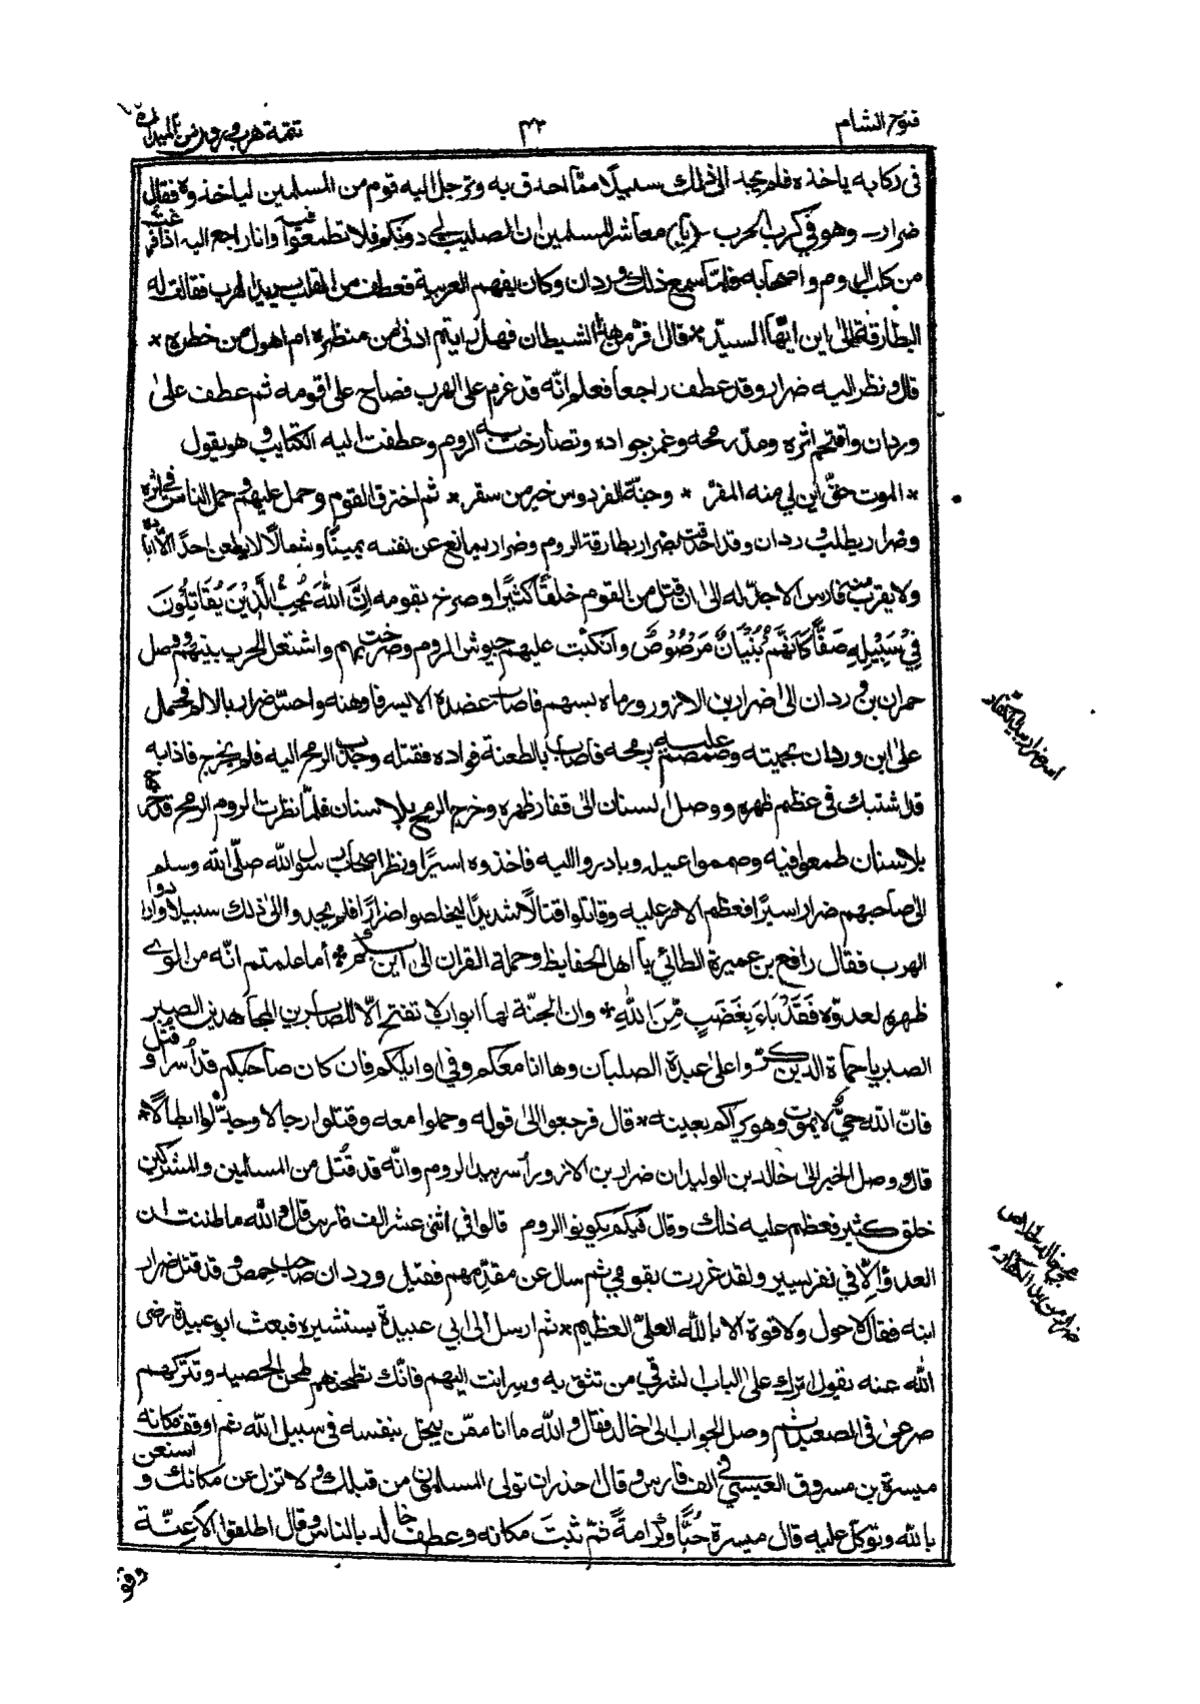 فتوح الشام
٤٣
تتمة هرب وردان من الميدان
فى ركابه ياخذه فلم يجد الى ذلك سبيلا مما احدق به وترجل اليه قوم من المسلمين لياخذوه فقال
ضرار وهو فى كرب الحرب يا معاشر المسلمين ان الصليب لى دونكم فلا تطمعوا فيه وانا راجع اليه اذا فرغت
من كلب الروم واصحابه فلما سمع ذلك وردان وكان يفهم العربية فعطف من القلب يريد الهرب فقالت له
البطارقة الى اين ايها السيد * قال افر من هذا الشيطان فهل رايتم ادنى من منظره ام اهول من خطره *
قال ونظر اليه ضرار وقد عطف راجعا فعلم انه قد عزم على الهرب فصاح على قومه ثم عطف على
وردان واقتحم اثره ومد رمحه وغمز جواده وتصارخت به الروم وعطفت اليه الكتايب وهو يقول
* الموت حق اين لى منه المفر * وجنة الفردوس خير من سقر * ثم اخترق القوم وحمل عليهم وحمل الناس فى اثره
وضرار يطلب وردان وقد احدقت بضرار بطارقة الروم وضرار يمانع عن نفسه يمينا وشمالا لا يطعن احدا الا اباده
ولا يقرب منه فارس الا جدله الى ان قتل من القوم خلقا كثيرا وصرخ بقومه اِنَّ اللهَ يُحِبُّ الَّذِيْنَ يُقَاتِلُوْنَ
فِيْ سَبِيْلِهِ صَفًّا كَاَنَّهُمْ بُنْيَانٌ مَرْصُوْصٌ وانكبت عليهم جيوش الروم وضرخت بهم واشتعل الحرب بينهم ووصل
حمران بن وردان الى ضرار بن الازور ورماه بسهم فاصاب عضده الايسر فاوهنه واحس ضرار بالالم فحمل
على ابن وردان بحميته وصمصم عليه برمحه فاصاب بالطعنة فواده فقتله وجذب الرمح اليه فلم يخرج فاذا به
قد اشتبك فى عظم ظهره ووصل السنان الى فقار ظهره وخرج الرمح بلا سنان فلما نظرت الروم الرمح قد خرج
بلا سنان طمعوا فيه وصمموا عليه وبادروا اليه فاخذوه اسيرا ونظر اصحاب رسول الله صلى الله وسلم
الى صاحبهم ضرار اسيرا فعظم الامر عليه وقاتلوا قتالا شديدا ليخلصوا ضرارا فلم يجدوا الى ذلك سبيلا وارادوا
الهرب فقال رافع بن عميرة الطائي يا اهل الحفايظ وحملة القران الى اين * أما علمتم انه من الوى
ظهره لعدوه فَقَدْ بَاءَ بِغَضَبٍ مِّنَ اللهِ * وان الجنة لها ابواب لا تفتح الا للصابرين المجاهدين الصبر
الصبر يا حماة الدين كرّوا على عبدة الصلبان وها انا معكم وفى اوايلكم فان كان صاحبكم قد أسر او قُتل
فان الله حيّ لا يموت وهو يراكم بعينه * قال فرجعوا الى قوله وحملوا معه وقتلوا رجالا وجدّلوا ابطالا *
قال ووصل الخبر الى خالد بن الوليد ان ضرار بن الازور أسر بيد الروم وانه قد قُتل من المسلمين والمشركين
خلق كثير فعظم عليه ذلك وقال فبكم يكونوا الروم قالوا فى اثنى عشر الف فارس قال والله ما ظننت ان
العدو الا فى نفر يسير ولقد غررت بقومى ثم سال عن مقدمهم فقيل وردان صاحب حمص وقد قتل ضرار
ابنه فقال لا حول ولا قوة الا بالله العلي العظيم * ثم ارسل الى ابى عبيدة يستشيره فبعث ابو عبيدة رضى
الله عنه يقول اترك على الباب الشرقى من تثق به وسر انت اليهم فانك تطحنهم طحن الحصيد وتتركهم
صرعى فى الصعيد ثم وصل الجواب الى خالد فقال والله ما انا ممن يبخل بنفسه فى سبيل الله ثم اوقف مكانه
ميسرة بن مسروق العبسي فى الف فارس وقال احذر ان تولى المسلمون من قبلك ولا تزل عن مكانك واستعن
بالله وتوكل عليه قال ميسرة حُبًّا وكرامةً ثم ثبتَ مكانه وعطف خالد بالناس وقال اطلقوا الأعِنّة
وقو